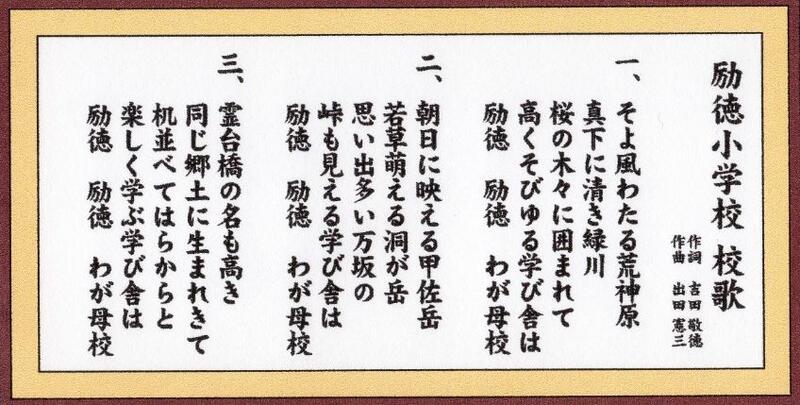 励徳小学校 校歌
作詞 吉田 敬徳
作曲 出田 憲三
一、そよ風わたる荒神原
真下に清き緑川
桜の木々に囲まれて
高くそびゆる学び舎は
励徳 励徳 わが母校
二、朝日に映える甲佐岳
若草萌える洞が岳
思い出多い万坂の
峠も見える学び舎は
励徳 励徳 わが母校
三、霊台橋の名も高き
同じ郷土に生まれきて
机並べてはらからと
楽しく学ぶ学び舎は
励徳 励徳 わが母校